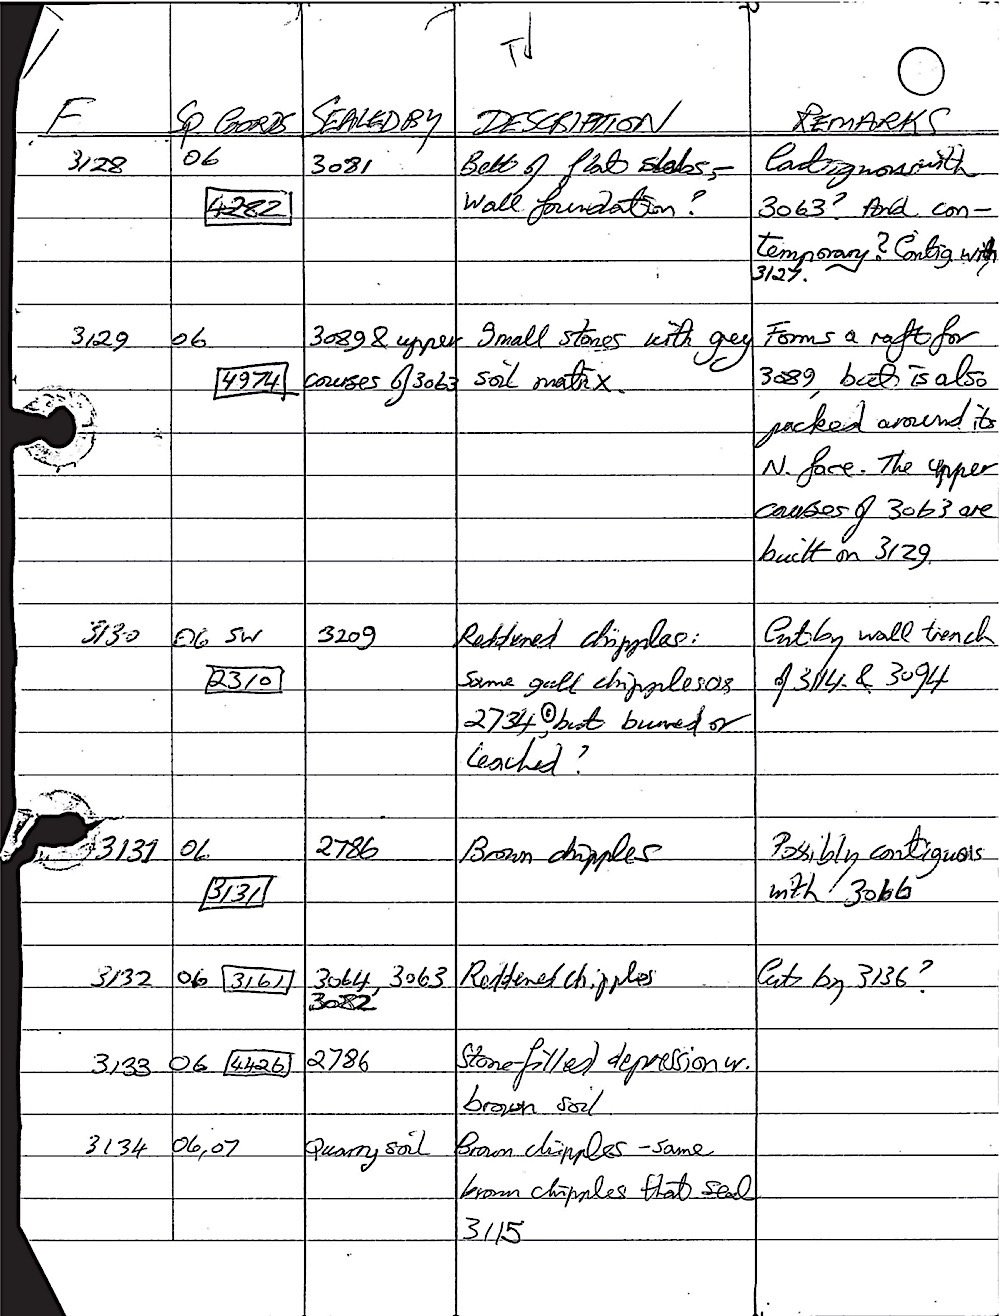 TJ
F SQ COORDS SEALED BY DESCRIPTION REMARKS
3128 06 3081 Belt of flat slabs - Contiguous with
4282 wall foundation? 3063? And con-
temporary? Contig. with
3127.
3129 06 3089 & upper Small stones with grey Forms a raft for
4974 courses of 3063 soil matrix. 3089, but is also
packed around its
N. face. The upper
courses of 3063 are
built on 3129.
3130 06 SW 3209 Reddened chipples: Cut by wall trench
2310 same gall chipples as of 3114 & 3094
2734, but burned or
leached?
3131 06 2786 Brown chipples Possibly contiguous
3131 with 3066
3132 06 3161 3064, 3063 Reddened chipples Cut by 3136?
3082
3133 06 4426 2786 Stone-filled depression w.
brown soil
3134 06,07 Quarry soil Brown chipples - same
brown chipples that seal
3115